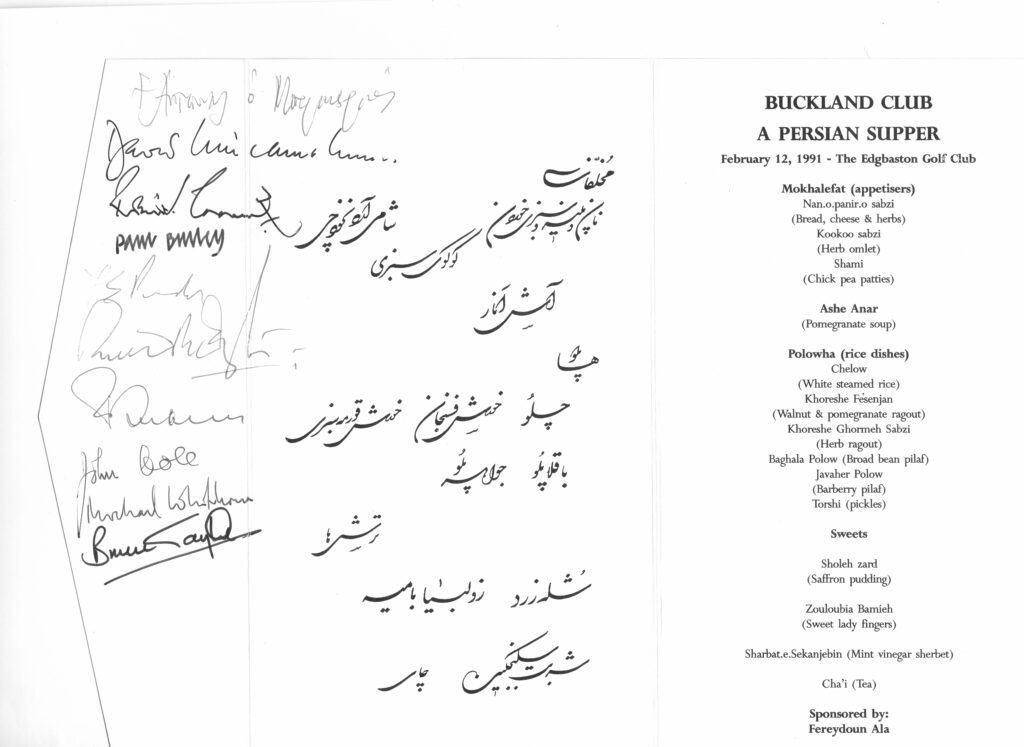 John Cole
Michael
Bruce Taylor
مخلّفات
نان و پنیر و سبزی خوردن
شامی آرد نخودچی
کوکوی سبزی
آش انار
پلوها
چلو خورش فسنجان خورش قورمه سبزی
باقلا پلو جواهر پلو
ترشی ها
شله زرد زولبیا بامیه
شربت سکنجبین چای
BUCKLAND CLUB
A PERSIAN SUPPER
February 12, 1991 - The Edgbaston Golf Club
Mokhalefat (appetisers)
Nan.o.panir.o sabzi
(Bread, cheese & herbs)
Kookoo sabzi
(Herb omlet)
Shami
(Chick pea patties)
Ashe Anar
(Pomegranate soup)
Polowha (rice dishes)
Chelow
(White steamed rice)
Khoreshe Fesenjan
(Walnut & pomegranate ragout)
Khoreshe Ghormeh Sabzi
(Herb ragout)
Baghala Polow (Broad bean pilaf)
Javaher Polow
(Barberry pilaf)
Torshi (pickles)
Sweets
Sholeh zard
(Saffron pudding)
Zouloubia Bamieh
(Sweet lady fingers)
Sharbat.e.Sekanjebin (Mint vinegar sherbet)
Cha'i (Tea)
Sponsored by:
Fereydoun Ala